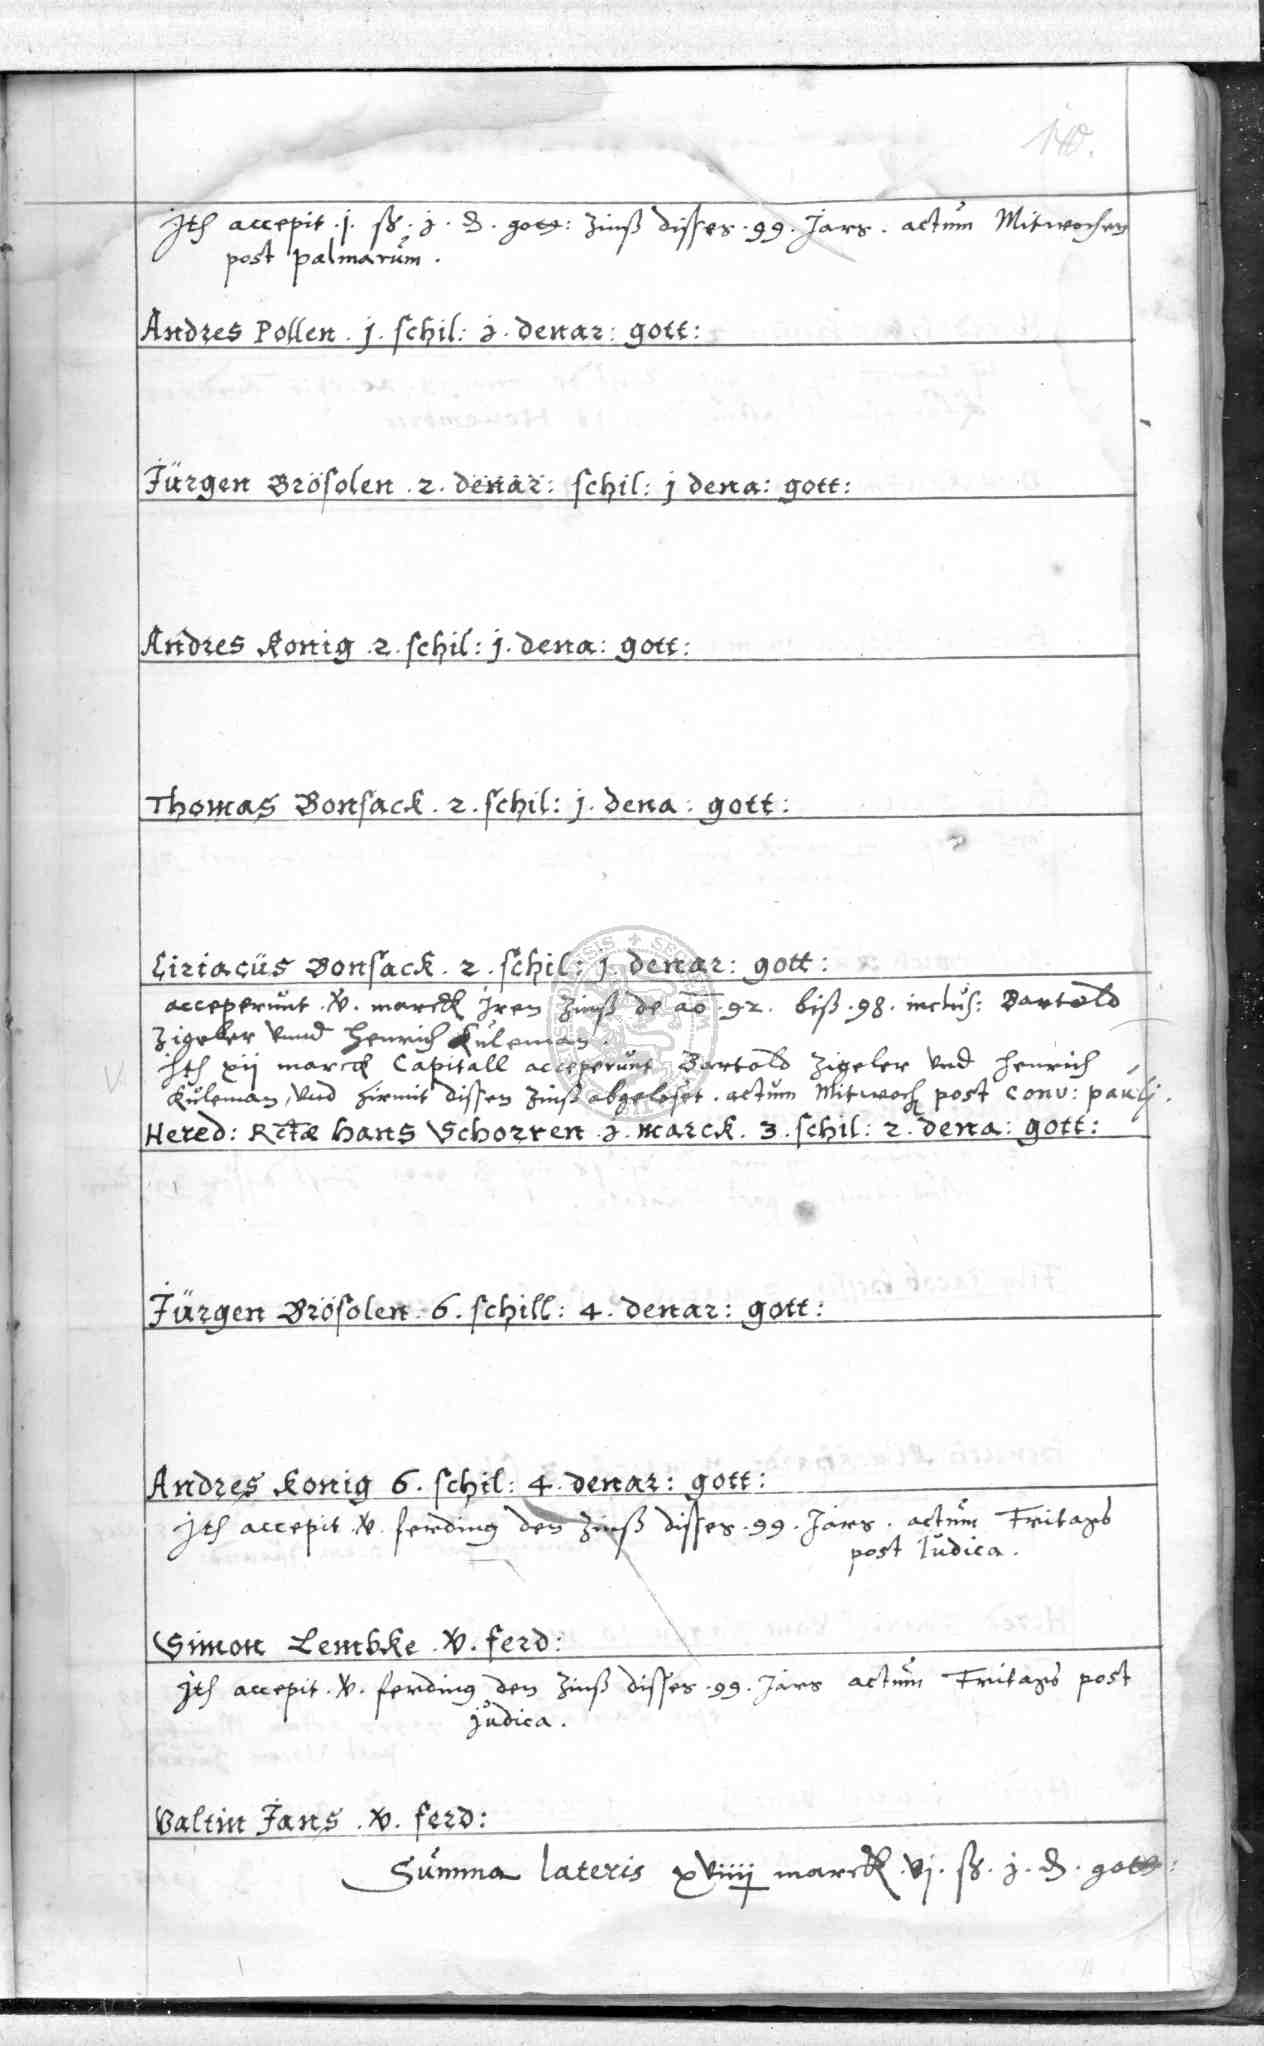 140.
Jtem accepit .j. ß. j. d. gott: Zinß disses .99. Jars. actum Mitwochen
post palmarum.
Andres Pollen. j. schil: j. denar: gott:
Jürgen Brösolen .2. denar: schil: j dena: gott:
Andres Konig .2. schil: j. dena: gott:
Thomas Bonsack. 2. schil: j. dena: gott:
Ciriacüs Bonsack. 2. schil: j. denar: gott:
acceperunt .v. marck Jren Zinß de ao .92. biß .98. inclus: Bartold
Zigeler vnnd Henrich Kuleman.
Jtem xij marck Capitall acceperunt Bartold Zigeler vnd Henrich
Kuleman, vnd hirmit dissen Zinß abgeloset. actum Mitwoch post Conv: paulj.
Hered: Hans Schorren .j. marck. 3. schil: 2. dena: gott:
Jürgen Brösolen. 6. schill: 4. denar: gott:
Andres Konig 6. schil: 4. denar: gott:
Jtem accepit .v. ferding den Zinß disses .99. Jars. actum Fritags
post Judica.
Simon Lembke .v. ferd:
Jtem accepit .v. ferding den Zinß disses .99. Jars actum Fritags post
judica.
Valtin Jans .v. ferd:
Summa lateris xviiij marck .vj. ß. j. d. gott: